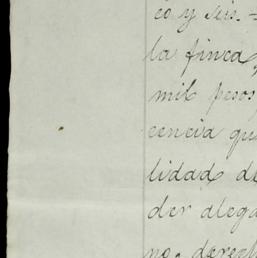 co y seis.=
la finca,
mil pesos
cencia qu
lidad de
der alega
no, derech